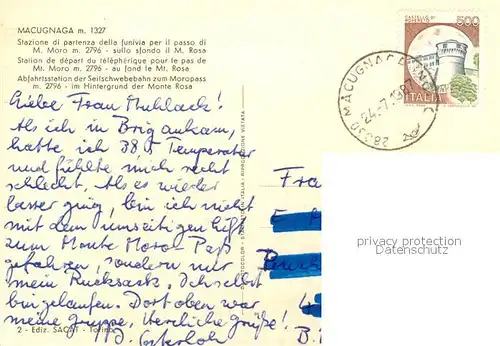 MACUGNAGA m. 1327
Stazione di partenza della funivia per il passo di
M. Moro m. 2796 - sullo sfondo il M. Rosa
Station de départ du téléphérique pour le pas de
Mt. Moro m. 2796 - au fond le Mt. Rosa
Abfahrtsstation der Seilschwebebahn zum Moropass
m. 2796 - im Hintergrund der Monte Rosa
500
ITALIA
MACUGNAGA
28030
24.-7.
Liebe Frau Muhlack!
Als ich in Brig ankam,
hatte ich 38,5 Temperatur
und fühlte mich recht
schlecht. Als es wieder
besser ging, bin ich nicht
mit dem umseitigen Lift
zum Monte Moro Paß
gefahren, sondern nur
mein Rucksack. Ich selbst
bin gelaufen. Dort oben war
meine Gruppe. Herzliche Grüße!
RIPRODUZIONE VIETATA
Fra
privacy protection
Datenschutz
2 - Ediz. SACAT - Torino